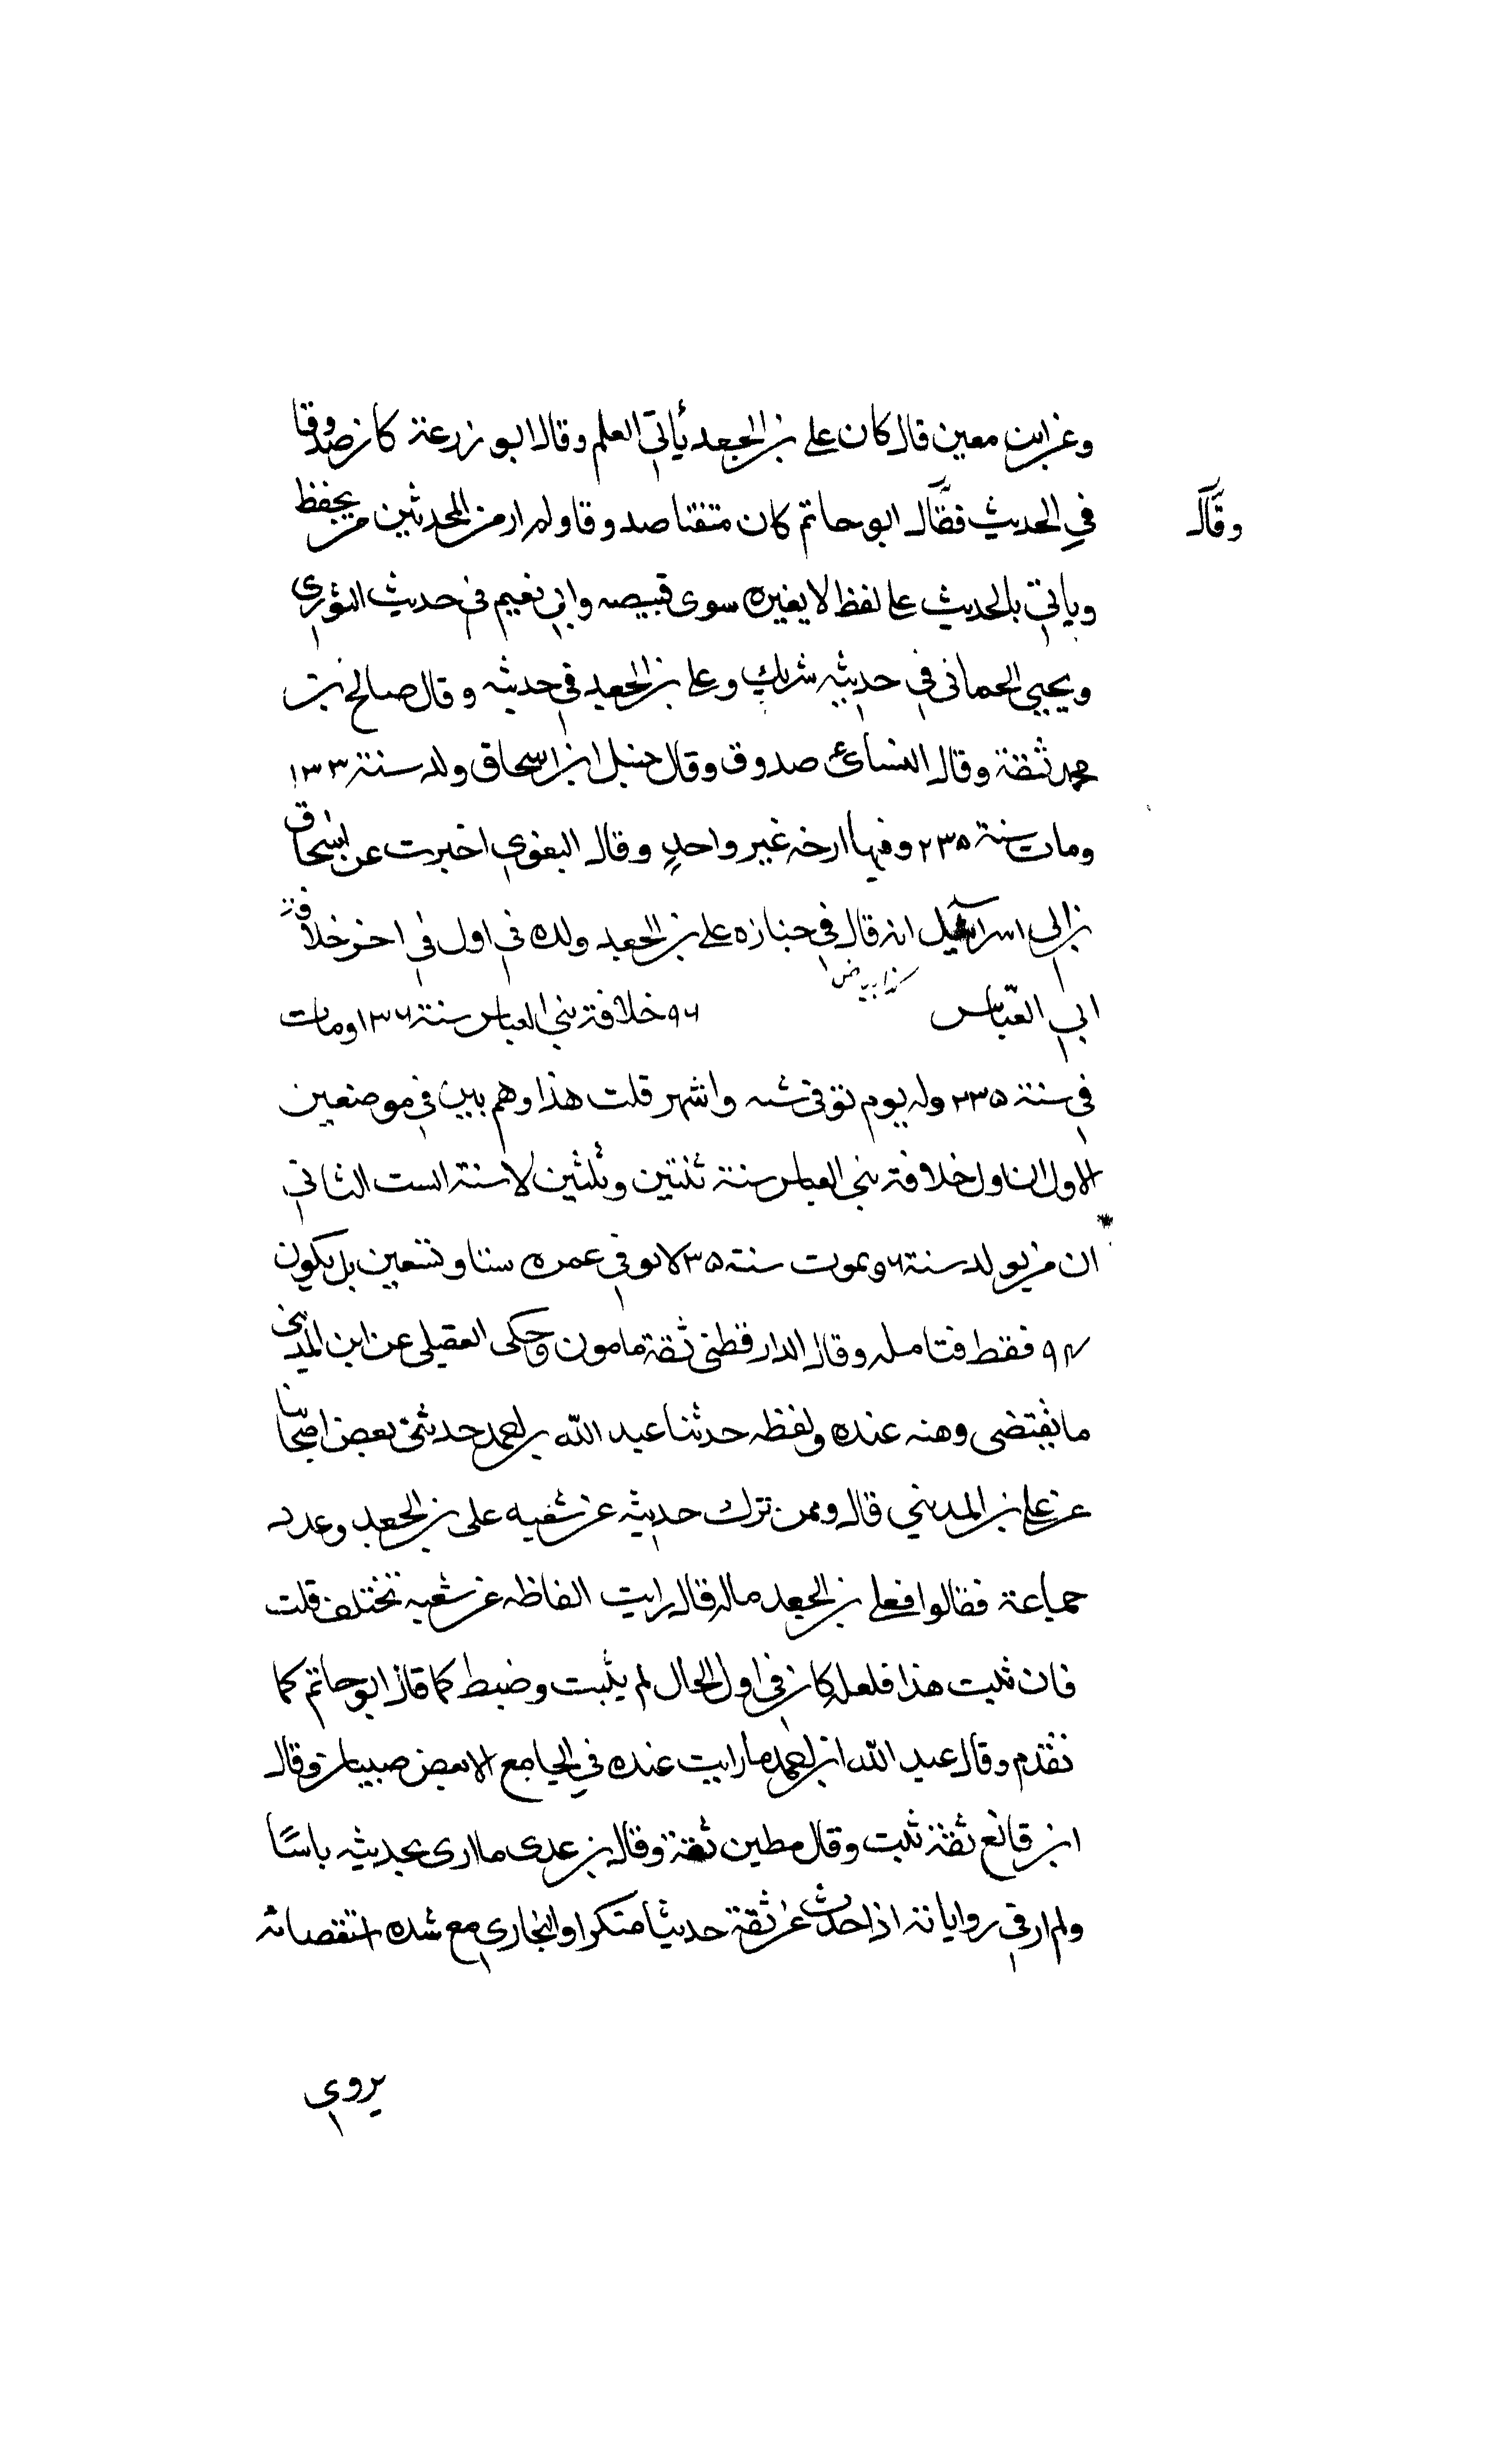 وعن ابن معين قال كان علي بن الجعد يأتي العلم وقال ابو زرعة كان صدوقا
في الحديث فقال ابو حاتم كان متقنا صدوقا ولم ار من المحدثين من يحفظ
وقال
وياتي بالحديث على لفظ لا يغيره سوى قبيصه وابي نعيم في حديث الثوري
ويحيى الحماني في حديثه شريك وعلي بن الجعد في حديثه وقال صالح بن
محمد ثقة وقال النسائي صدوق وقال حنبل ابن اسحاق ولد سنة ١٣٣
ومات سنة ٢٣٥ وفيها ارخه غير واحد وقال البغوي اخبرت عن اسحاق
بن ابي اسرائيل انه قال في جنازه علي بن الجعد ولد في اول في اخر خلافة
كذا بياض
ابي العباس ٩٦ خلافة بني العباس سنة ١٣٦ ومات
في سنة ٢٣٥ وله يوم توفي سه واشهر قلت هذا وهم بين في موضعين
الاول ان اول خلافة بني العباس سنة ثنتين وثلثين لا سنة الست الثاني
ان من يولد سنة ٦ ويموت سنة ٣٥ لا يوفي عمره ستا وتسعين بل يكون
٩٤ فقط فتامله وقال الدارقطني ثقة مامون وحكى العقيلي عن ابن المديني
ما يقتضي وهنه عنده ولفظه حدثنا عبد الله بن احمد حدثني بعض اصحابنا
عن علي بن المديني قال وممن ترك حديثه عن شعبه علي بن الجعد وعدد
جماعة فقالوا فعلي بن الجعد ماله قال رايت الفاظه عن شعبه تختلف قلت
فان ثبت هذا فلعله كان في اول الحال لم يثبت وضبط كما قال ابو حاتم كما
تقدم وقال عبد الله ابن احمد ما رايت عنده في الجامع الا بعض صبيان وقال
ابن قانع ثقة ثبت وقال مطين ثقة وقال بن عدي ما ارى بحديثه باسًا
ولم ار في رواياته اذا حدث عن ثقة حديثا منكرا والبخاري مع شده استقصائه
يروي